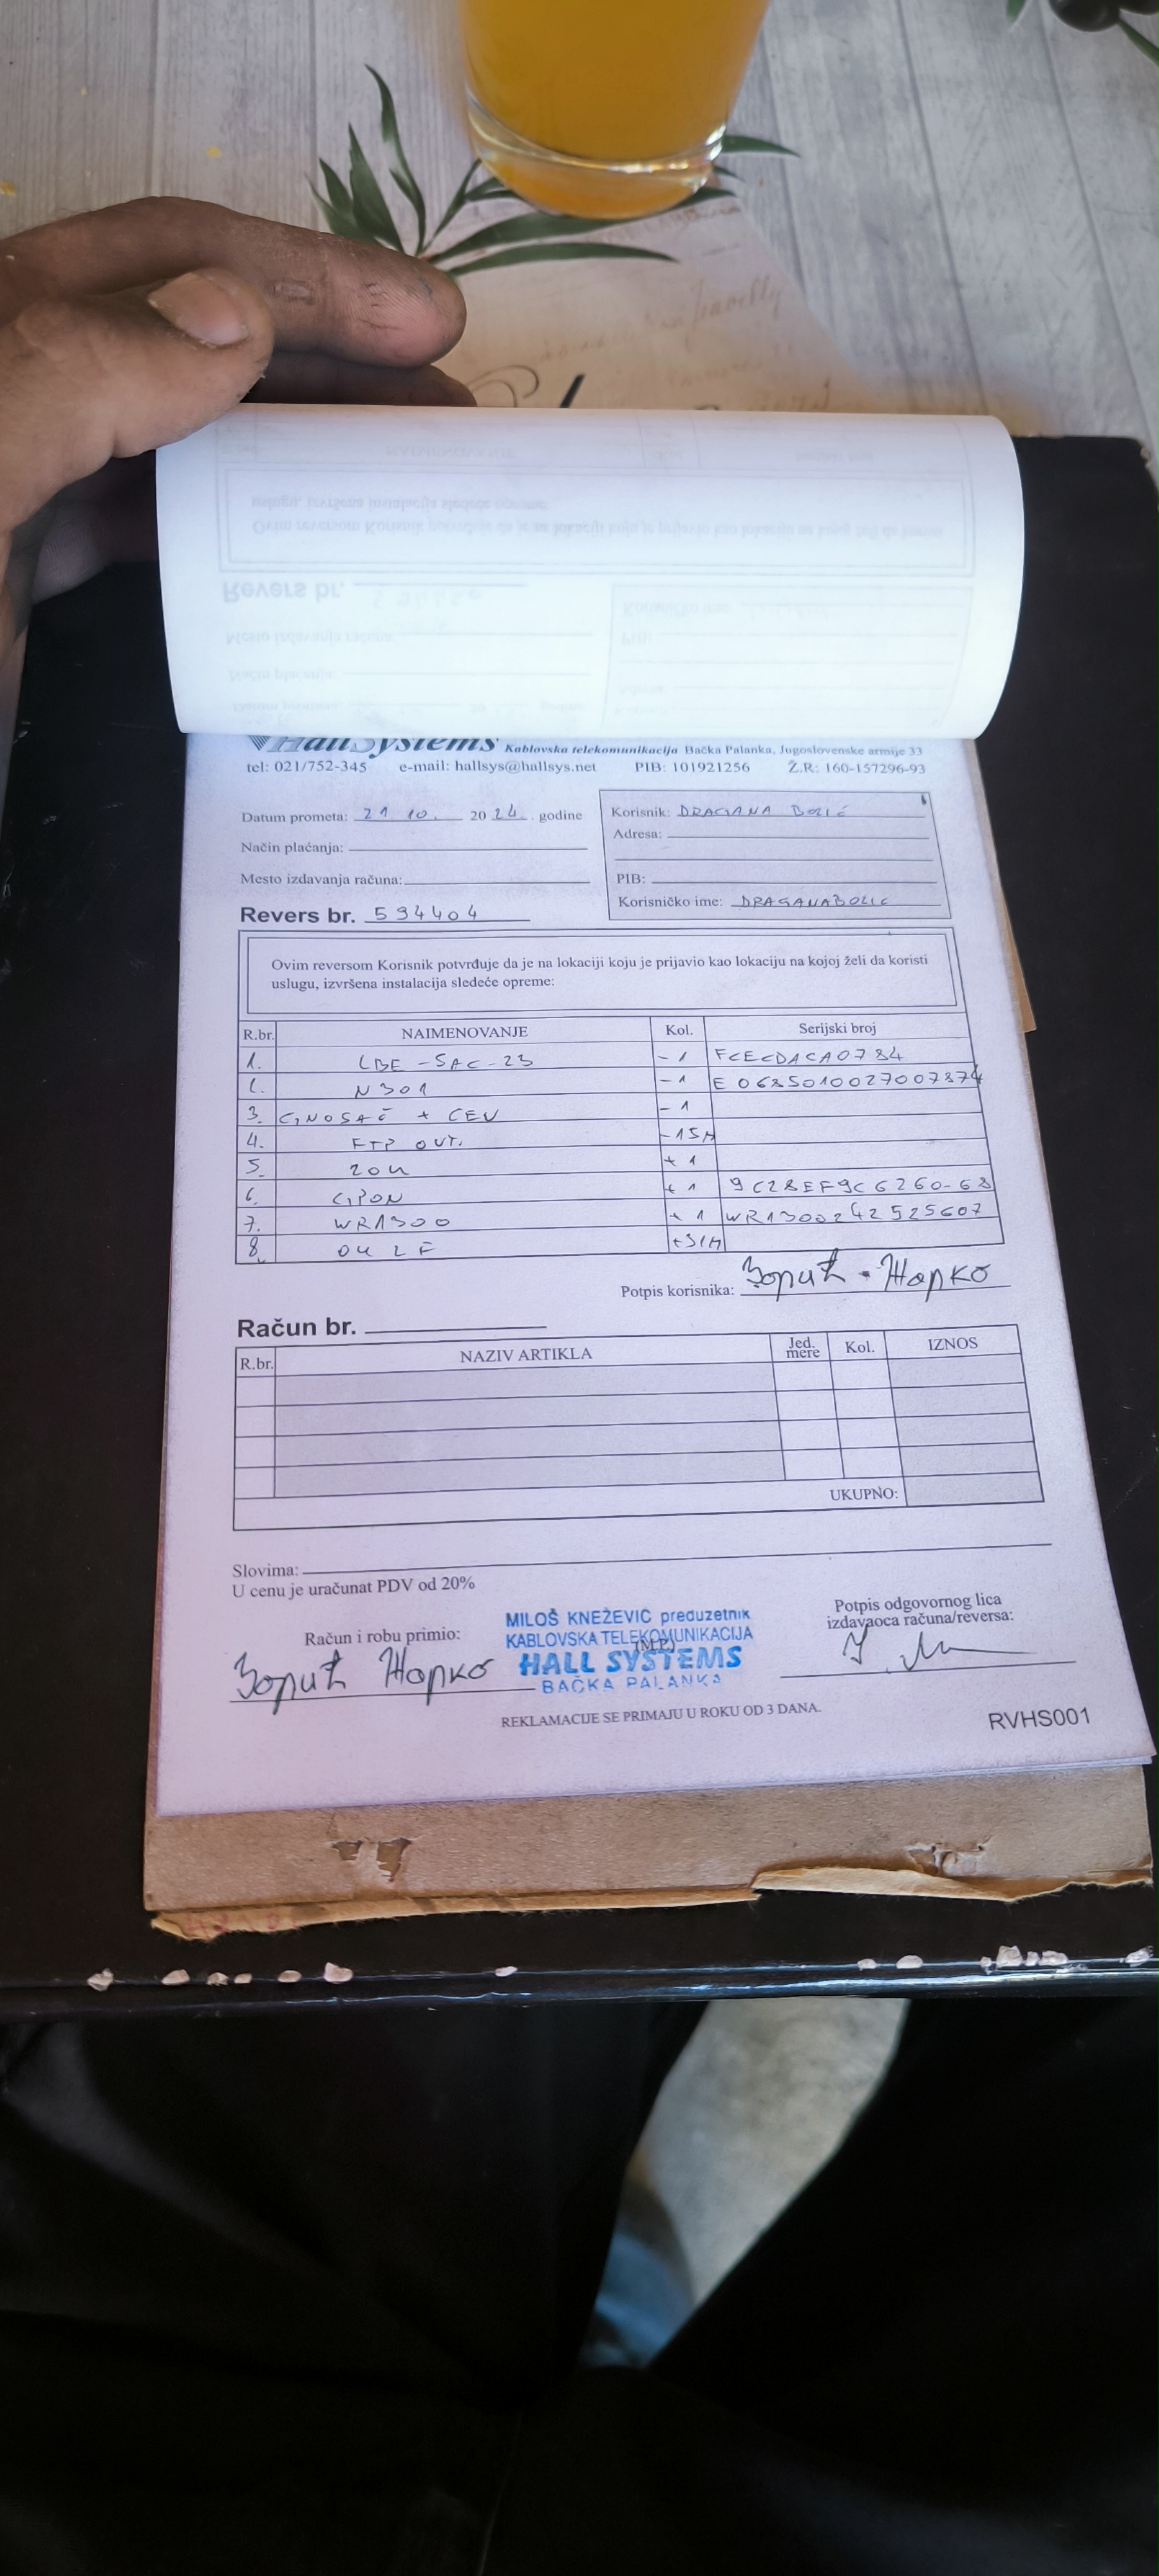 HallSystems Kablovska telekomunikacija Bačka Palanka, Jugoslovenske armije 33
tel: 021/752-345 e-mail: hallsys@hallsys.net PIB: 101921256 Ž.R: 160-157296-93
Datum prometa: 21 10. 2024. godine
Način plaćanja:
Mesto izdavanja računa:
Revers br. 594404
Korisnik: DRAGANA BOLIĆ
Adresa:
PIB:
Korisničko ime: DRAGANABOLIC
Ovim reversom Korisnik potvrđuje da je na lokaciji koju je prijavio kao lokaciju na kojoj želi da koristi
uslugu, izvršena instalacija sledeće opreme:
R.br. NAIMENOVANJE Kol. Serijski broj
1. LBE-5AC-23 -1 FCECDACA0784
N301 -1 E0685010027007874
3. + CEV -1
4. FTP OUT. -15M
5. ZOK +1
6. GPON +1 9C28EF9C6260-68
7. WR1300 +1 WR1300242525607
8.
Potpis korisnika: Зорић - Жарко
Račun br.
R.br. NAZIV ARTIKLA Jed. mere Kol. IZNOS
UKUPNO:
Slovima:
U cenu je uračunat PDV od 20%
Račun i robu primio:
Зорић Жарко
MILOŠ KNEŽEVIĆ preduzetnik
KABLOVSKA TELEKOMUNIKACIJA
(M.P.)
HALL SYSTEMS
BAČKA PALANKA
Potpis odgovornog lica
izdavaoca računa/reversa:
REKLAMACIJE SE PRIMAJU U ROKU OD 3 DANA.
RVHS001